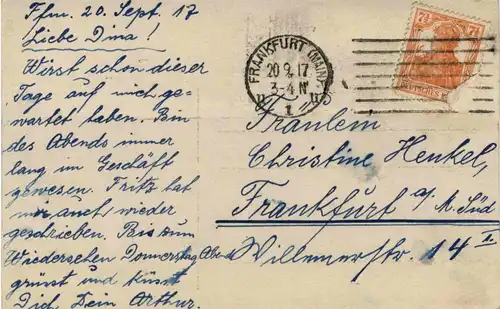 Ffm. 20. Sept. 17
Liebe Dina!
Wirst schon dieser
Tage auf mich ge-
wartet haben. Bin
des Abends immer
lang im Geschäft
gewesen. Fritz hat
mir auch wieder
geschrieben. Bis zum
Wiedersehen Donnerstag Abend
grüsst und küsst
Dich Dein Arthur.
FRANKFURT (MAIN)
20.9.17.
3-4 N
1
7½ 7½
Fräulein
Christine Henkel,
Frankfurt a/M. Süd
Willemerstr. 14 II